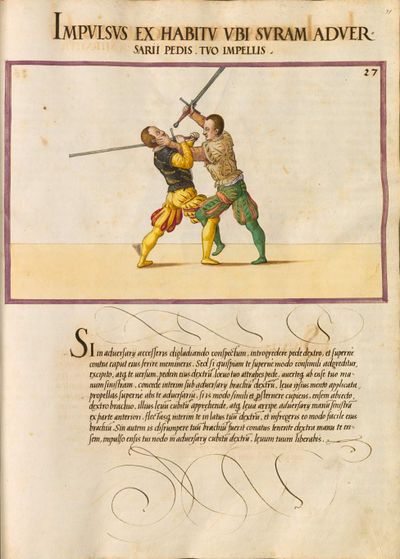 31
IMPVLSVS EX HABITV VBI SVRAM ADVER
SARII PEDIS TVO IMPELLIS.
27
Si in adversarij accesseris digladiando conspectum, introgredere pede dextro, et superne
contra caput eius ferire memineris. Sed si quispiam te superne modo consimili adgrediatur,
excepto, atq te versum, pedem eius dextrū, locuo tuo attrahes pede, averteq ab ense tuo ma
num sinistram, concede interim sub adversarij brachiū dextrū, leva ipsius mento applicata
propellas superne abs te adversariū, si is modo simili te psternere cupiens, ensem abiecto
dextro brachio, illius levū cubitū apprehende, atq leva arripe adversarij manū sinistrā
ex parte anteriori, flectasq interim te in latus tuū dextrū, et infregeris eo modo facile eius
brachiū. Sin autem is disrumpere tuū brachiū fuerit conatus tenente dextra manu te en
sem, impulso ensis tui nodo in adversarij cubitū dextrū, levum tuum liberabis.